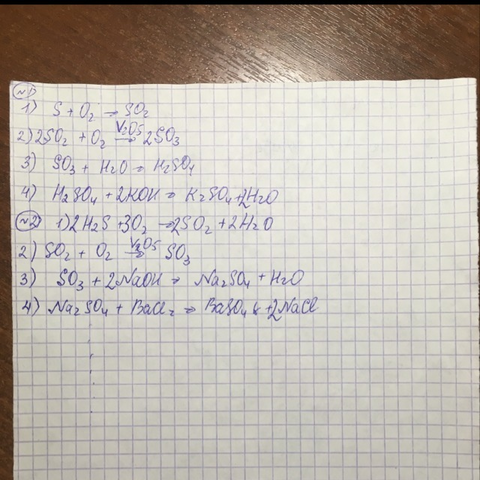 №1
1) S + O2 → SO2
2) 2SO2 + O2 V2O5→ 2SO3
3) SO3 + H2O = H2SO4
4) H2SO4 + 2KOH = K2SO4 + 2H2O
№2 1) 2H2S + 3O2 → 2SO2 + 2H2O
2) SO2 + O2 V2O5→ SO3
3) SO3 + 2NaOH → Na2SO4 + H2O
4) Na2SO4 + BaCl2 → BaSO4↓ + 2NaCl